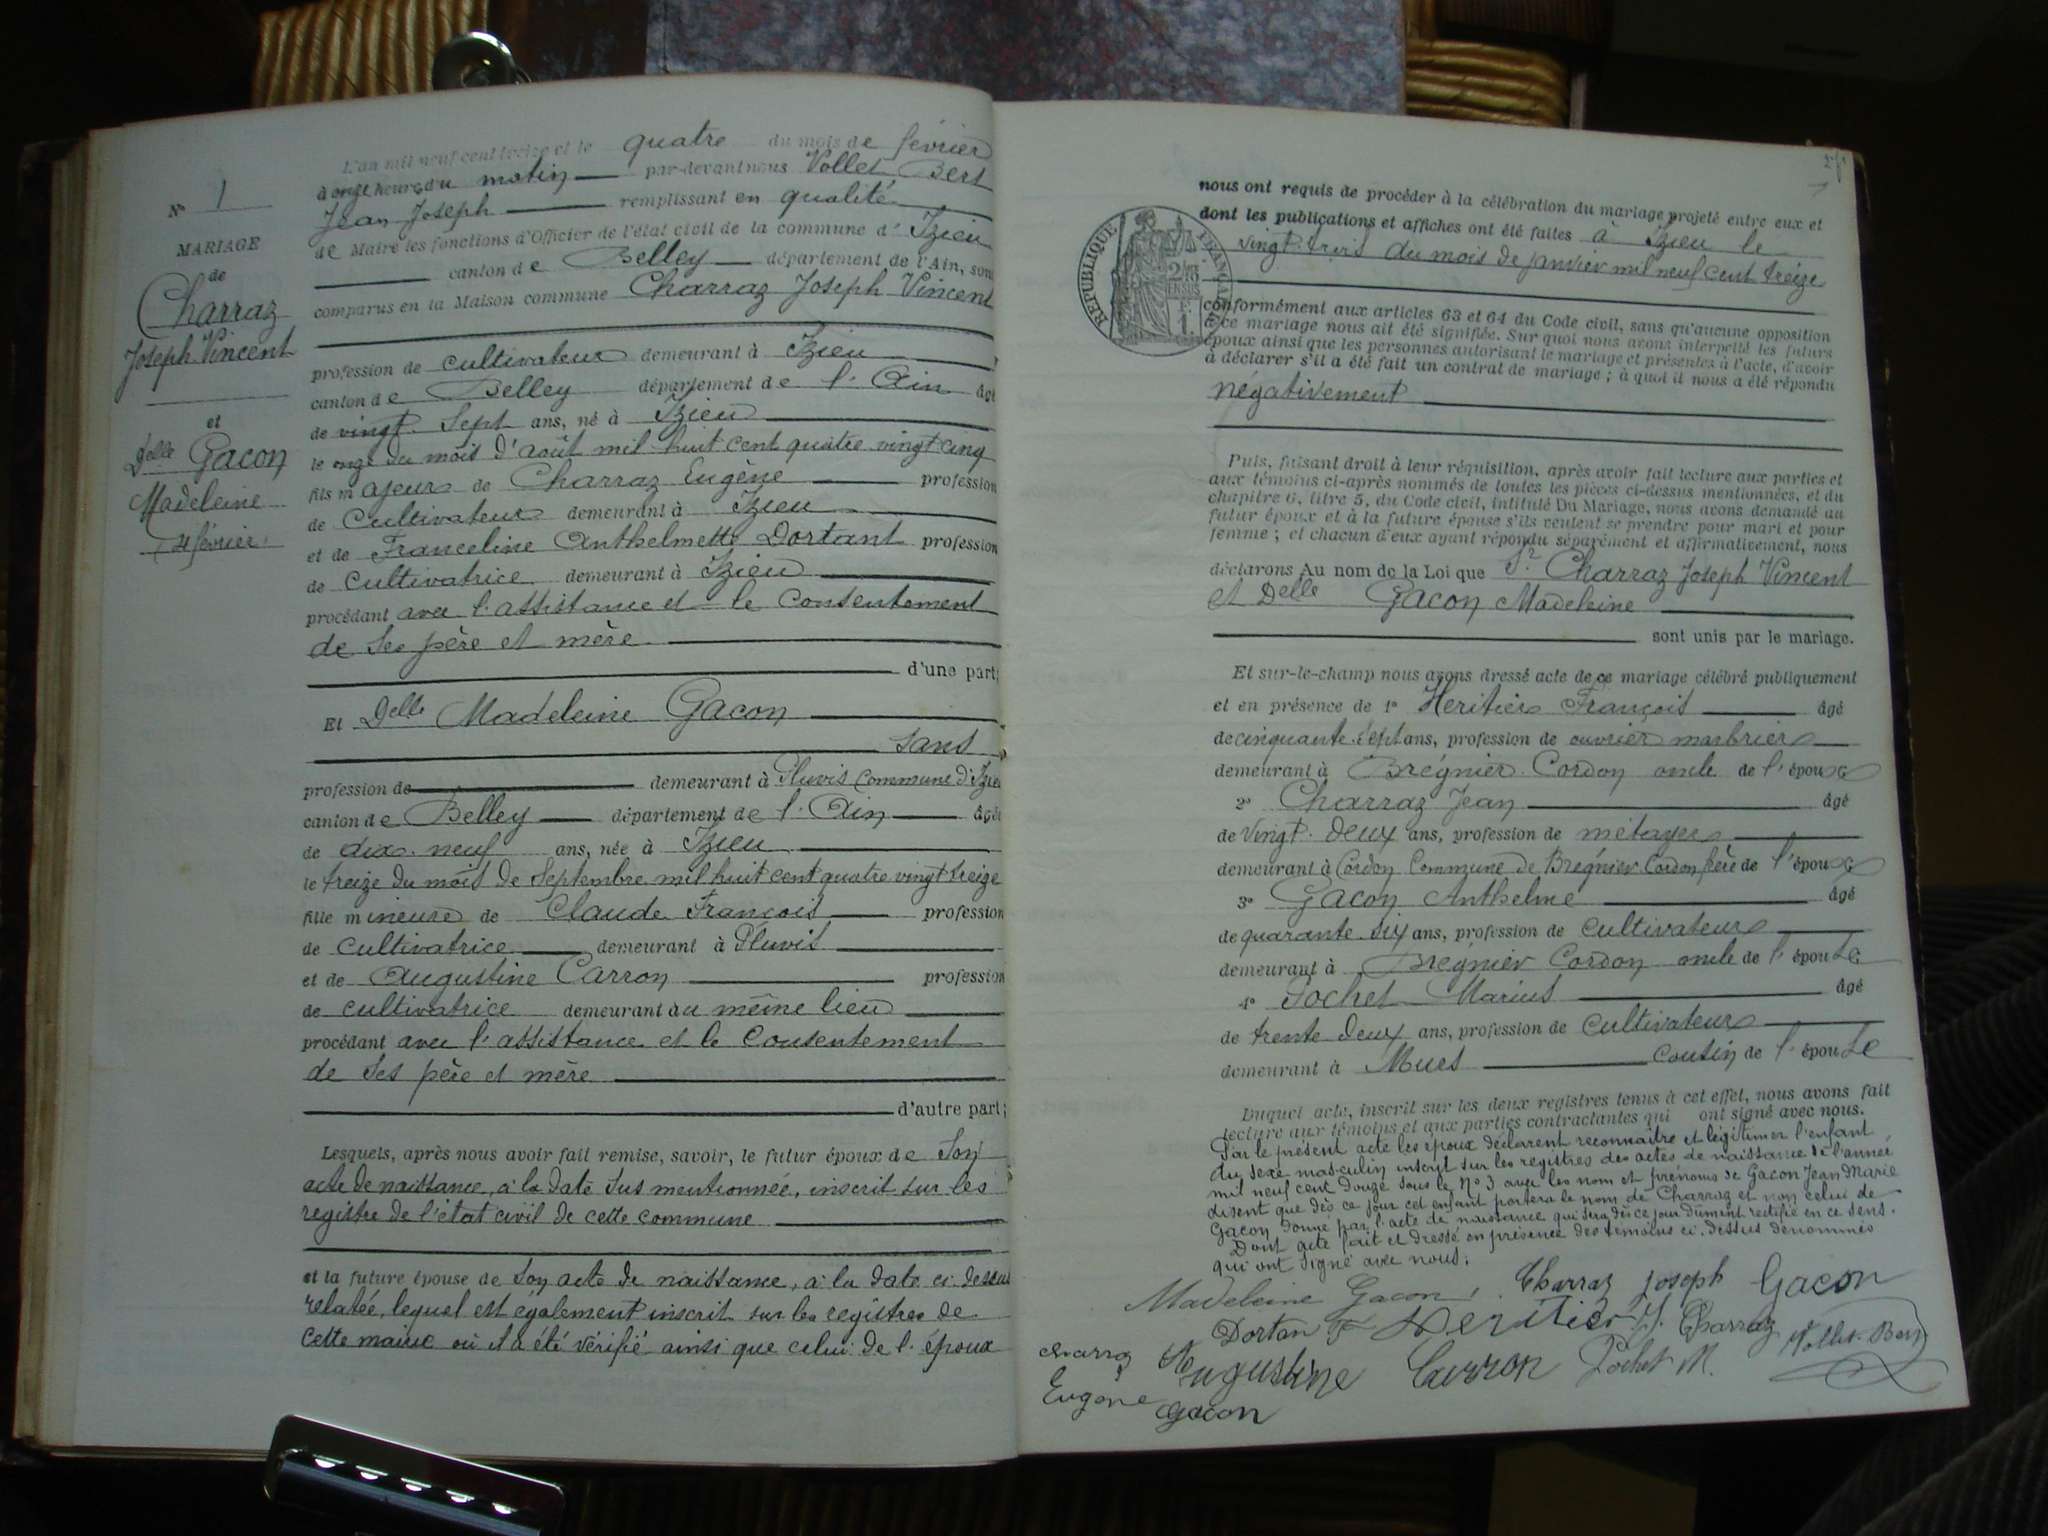 N° 1
MARIAGE
de
Charraz
Joseph Vincent
et
Delle Gacon
Madeleine
4 février
L'an mil neuf cent treize et le quatre du mois de février
à onze heures du matin par-devant nous Vollet Bert
Jean Joseph remplissant en qualité
de Maire les fonctions d'Officier de l'état civil de la commune d' Izieu
canton de Belley département de l'Ain, sont
comparus en la Maison commune Charraz Joseph Vincent
profession de cultivateur demeurant à Izieu
canton de Belley département de l'Ain âgé
de vingt-sept ans, né à Izieu
le onze du mois d'août mil huit cent quatre vingt cinq
fils majeur de Charraz Eugène profession
de cultivateur demeurant à Izieu
et de Franceline Anthelmette Dortant profession
de cultivatrice demeurant à Izieu
procédant avec l'assistance et le consentement
de ses père et mère
d'une part;
Et Delle Madeleine Gacon
sans
profession de demeurant à Pluvis commune d'Izieu
canton de Belley département de l'Ain âgée
de dix-neuf ans, née à Izieu
le treize du mois de Septembre mil huit cent quatre vingt treize
fille mineure de Claude François profession
de cultivatrice demeurant à Pluvis
et de Augustine Carron profession
de cultivatrice demeurant au même lieu
procédant avec l'assistance et le consentement
de ses père et mère
d'autre part;
Lesquels, après nous avoir fait remise, savoir, le futur époux de Son
acte de naissance, à la date sus mentionnée, inscrit sur les
registre de l'état civil de cette commune
et la future épouse de Son acte de naissance, à la date ci dessus
relatée, lequel est également inscrit sur les registres de
cette mairie où il a été vérifié ainsi que celui de l'époux
nous ont requis de procéder à la célébration du mariage projeté entre eux et
dont les publications et affiches ont été faites à Izieu le
vingt-trois du mois de janvier mil neuf cent treize
RÉPUBLIQUE FRANÇAISE
conformément aux articles 63 et 64 du Code civil, sans qu'aucune opposition
à ce mariage nous ait été signifiée. Sur quoi nous avons interpellé les futurs
époux ainsi que les personnes autorisant le mariage et présentes à l'acte, d'avoir
à déclarer s'il a été fait un contrat de mariage; à quoi il nous a été répondu
négativement
Puis, faisant droit à leur réquisition, après avoir fait lecture aux parties et
aux témoins ci-après nommés de toutes les pièces ci-dessus mentionnées, et du
chapitre 6, titre 5, du Code civil, intitulé Du Mariage, nous avons demandé au
futur époux et à la future épouse s'ils veulent se prendre pour mari et pour
femme; et chacun d'eux ayant répondu séparément et affirmativement, nous
déclarons Au nom de la Loi que Sr Charraz Joseph Vincent
et Delle Gacon Madeleine
sont unis par le mariage.
Et sur-le-champ nous avons dressé acte de ce mariage célébré publiquement
et en présence de 1° Heritier François âgé
de cinquante-sept ans, profession de ouvrier marbrier
demeurant à Brégnier-Cordon oncle de l'époux
2° Charraz Jean âgé
de vingt-deux ans, profession de métayer
demeurant à Cordon Commune de Brégnier Cordon frère de l'époux
3° Gacon Anthelme âgé
de quarante-six ans, profession de cultivateur
demeurant à Brégnier Cordon oncle de l'épouse
4° Pochet Marius âgé
de trente deux ans, profession de cultivateur
demeurant à Mues cousin de l'épouse
Duquel acte, inscrit sur les deux registres tenus à cet effet, nous avons fait
lecture aux témoins et aux parties contractantes qui ont signé avec nous.
Par le présent acte les époux déclarent reconnaître et légitimer l'enfant
du sexe masculin inscrit sur les registres des actes de naissance de l'année
mil neuf cent douze sous le N° 3 avec les nom et prénoms de Gacon Jean Marie
disent que dès ce jour cet enfant portera le nom de Charraz et non celui de
Gacon donné par l'acte de naissance qui sera dès ce jour dûment rectifié en ce sens.
Dont acte fait et dressé en présence des témoins ci-dessus dénommés
qui ont signé avec nous.
Madeleine Gacon Charraz Joseph Gacon
Dortan F Heritier J. Charraz Vollet-Bert
Charraz Augustine Carron Pochet M.
Eugene Gacon